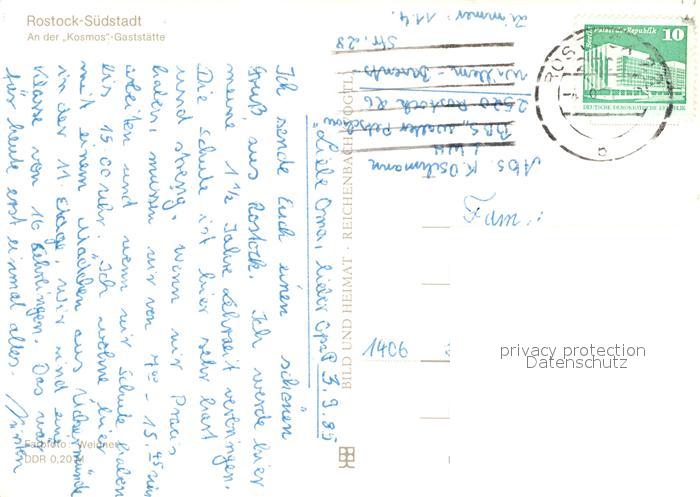 Rostock-Südstadt
An der „Kosmos"-Gaststätte
Liebe Oma, lieber Opa! 3.9.85
Ich sende Euch einen schönen
Gruß aus Rostock. Ich werde hier
meine 1 ½ Jahre Lehrzeit verbringen.
Die Schule ist hier sehr hart
und streng. Wenn wir Praxis
haben, müssen wir von 7⁰⁰ - 15.45 Uhr
arbeiten und wenn wir Schule haben
bis 15.00 Uhr. Ich wohne hier
mit einem Mädchen aus Ückermünde
in der 11. Etage. Wir sind eine
Klasse von 16 Lehrlingen. Das war
für heute erst einmal alles.
Farbfoto: Weigner
DDR 0,20 M
BILD UND HEIMAT · REICHENBACH (VOGTL)
Abs. K. Oschmann
LWH
BBS „Walter
2520 Rostock 26
Willem-Barents-
Str. 28
Zimmer: 11.4.
Fam.:
1406
Palast der Republik 10
DEUTSCHE DEMOKRATISCHE REPUBLIK
ROSTOCK
b
privacy protection
Datenschutz